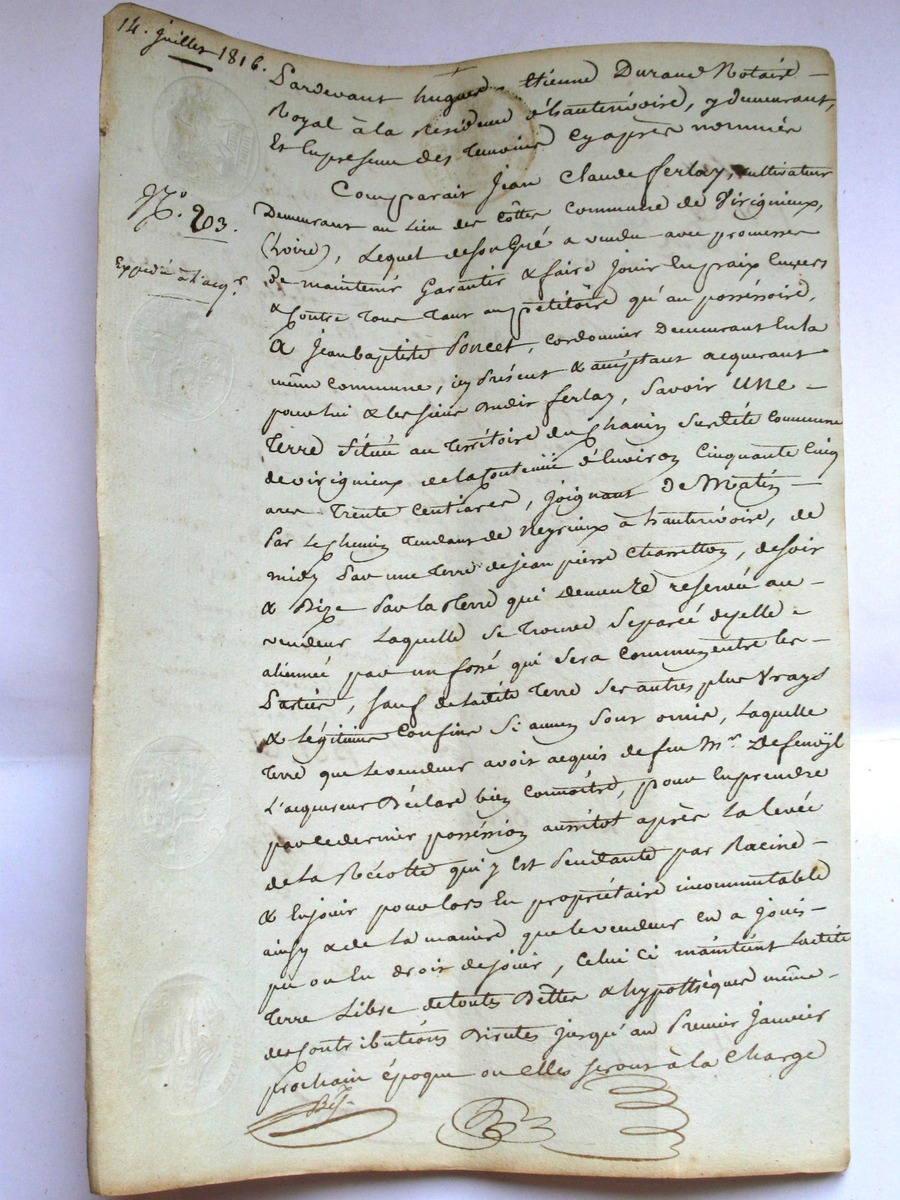 14. juillet 1816.
Pardevant hugues Etienne Durand Notaire
Royal à la Résidence d'hauterivoire, y demeurant,
Et En presence des Temoins Cy après nommés
Comparait Jean Claude ferlay, cultivateur
N.o 203.
Demeurant au Lieu des Côttes Commune de Virignieux,
(Loire), Lequel de son Gré a vendu avec promesse
Expedié à l'acq.r
De maintenir Garantir & faire Jouir En paix Envers
& Contre Tous Tant au pétitoire qu'au posséssoire,
A Jean baptiste Poncet, cordonnier Demeurant En la
même Commune, icy présent & acceptant acquerant
pour lui & les siens ferlay, Savoir UNE
Terre Située au Térritoire du Chanin Surdité Commune
de virignieux de la Contenue d'Environ Cinquante Cinq
ares Trente Centiares, Joignant De Matin
Par Le Chemin Tendant de Meyrieux à hauterivoire, de
midy Par une Terre de Jean pierre Charretton, de soir
& Bize Par la Terre qui demeure reservée au
vendeur Laquelle Se Trouve Separée d'yselle
alienneé par un fossé qui Sera Commun entre les
Parties, Sauf de Ladite Terre Ses autres plus Vrays
& Légitimes Confins Si aucuns Sont omis, Laquelle
Terre que Le vendeur avoit acquis de feu M.r
L'acquereur Déclare bien Connoître, pour En prendre
par ce dernier posséssion aussitot après La Levée
de La Récolte qui y Est Pendante par Racine
& En jouir pour lors En propriétaire incommutable
ainsy & de La maniere que Le vendeur en a jouis
pu ou En droit de jouir, Celui ci maintient Ladite
Terre Libre de toutes Dettes & hypothèques même
des Contributions Dirèctes jusqu'au Premier Janvier
prochain époque ou Elles Seront à La Charge